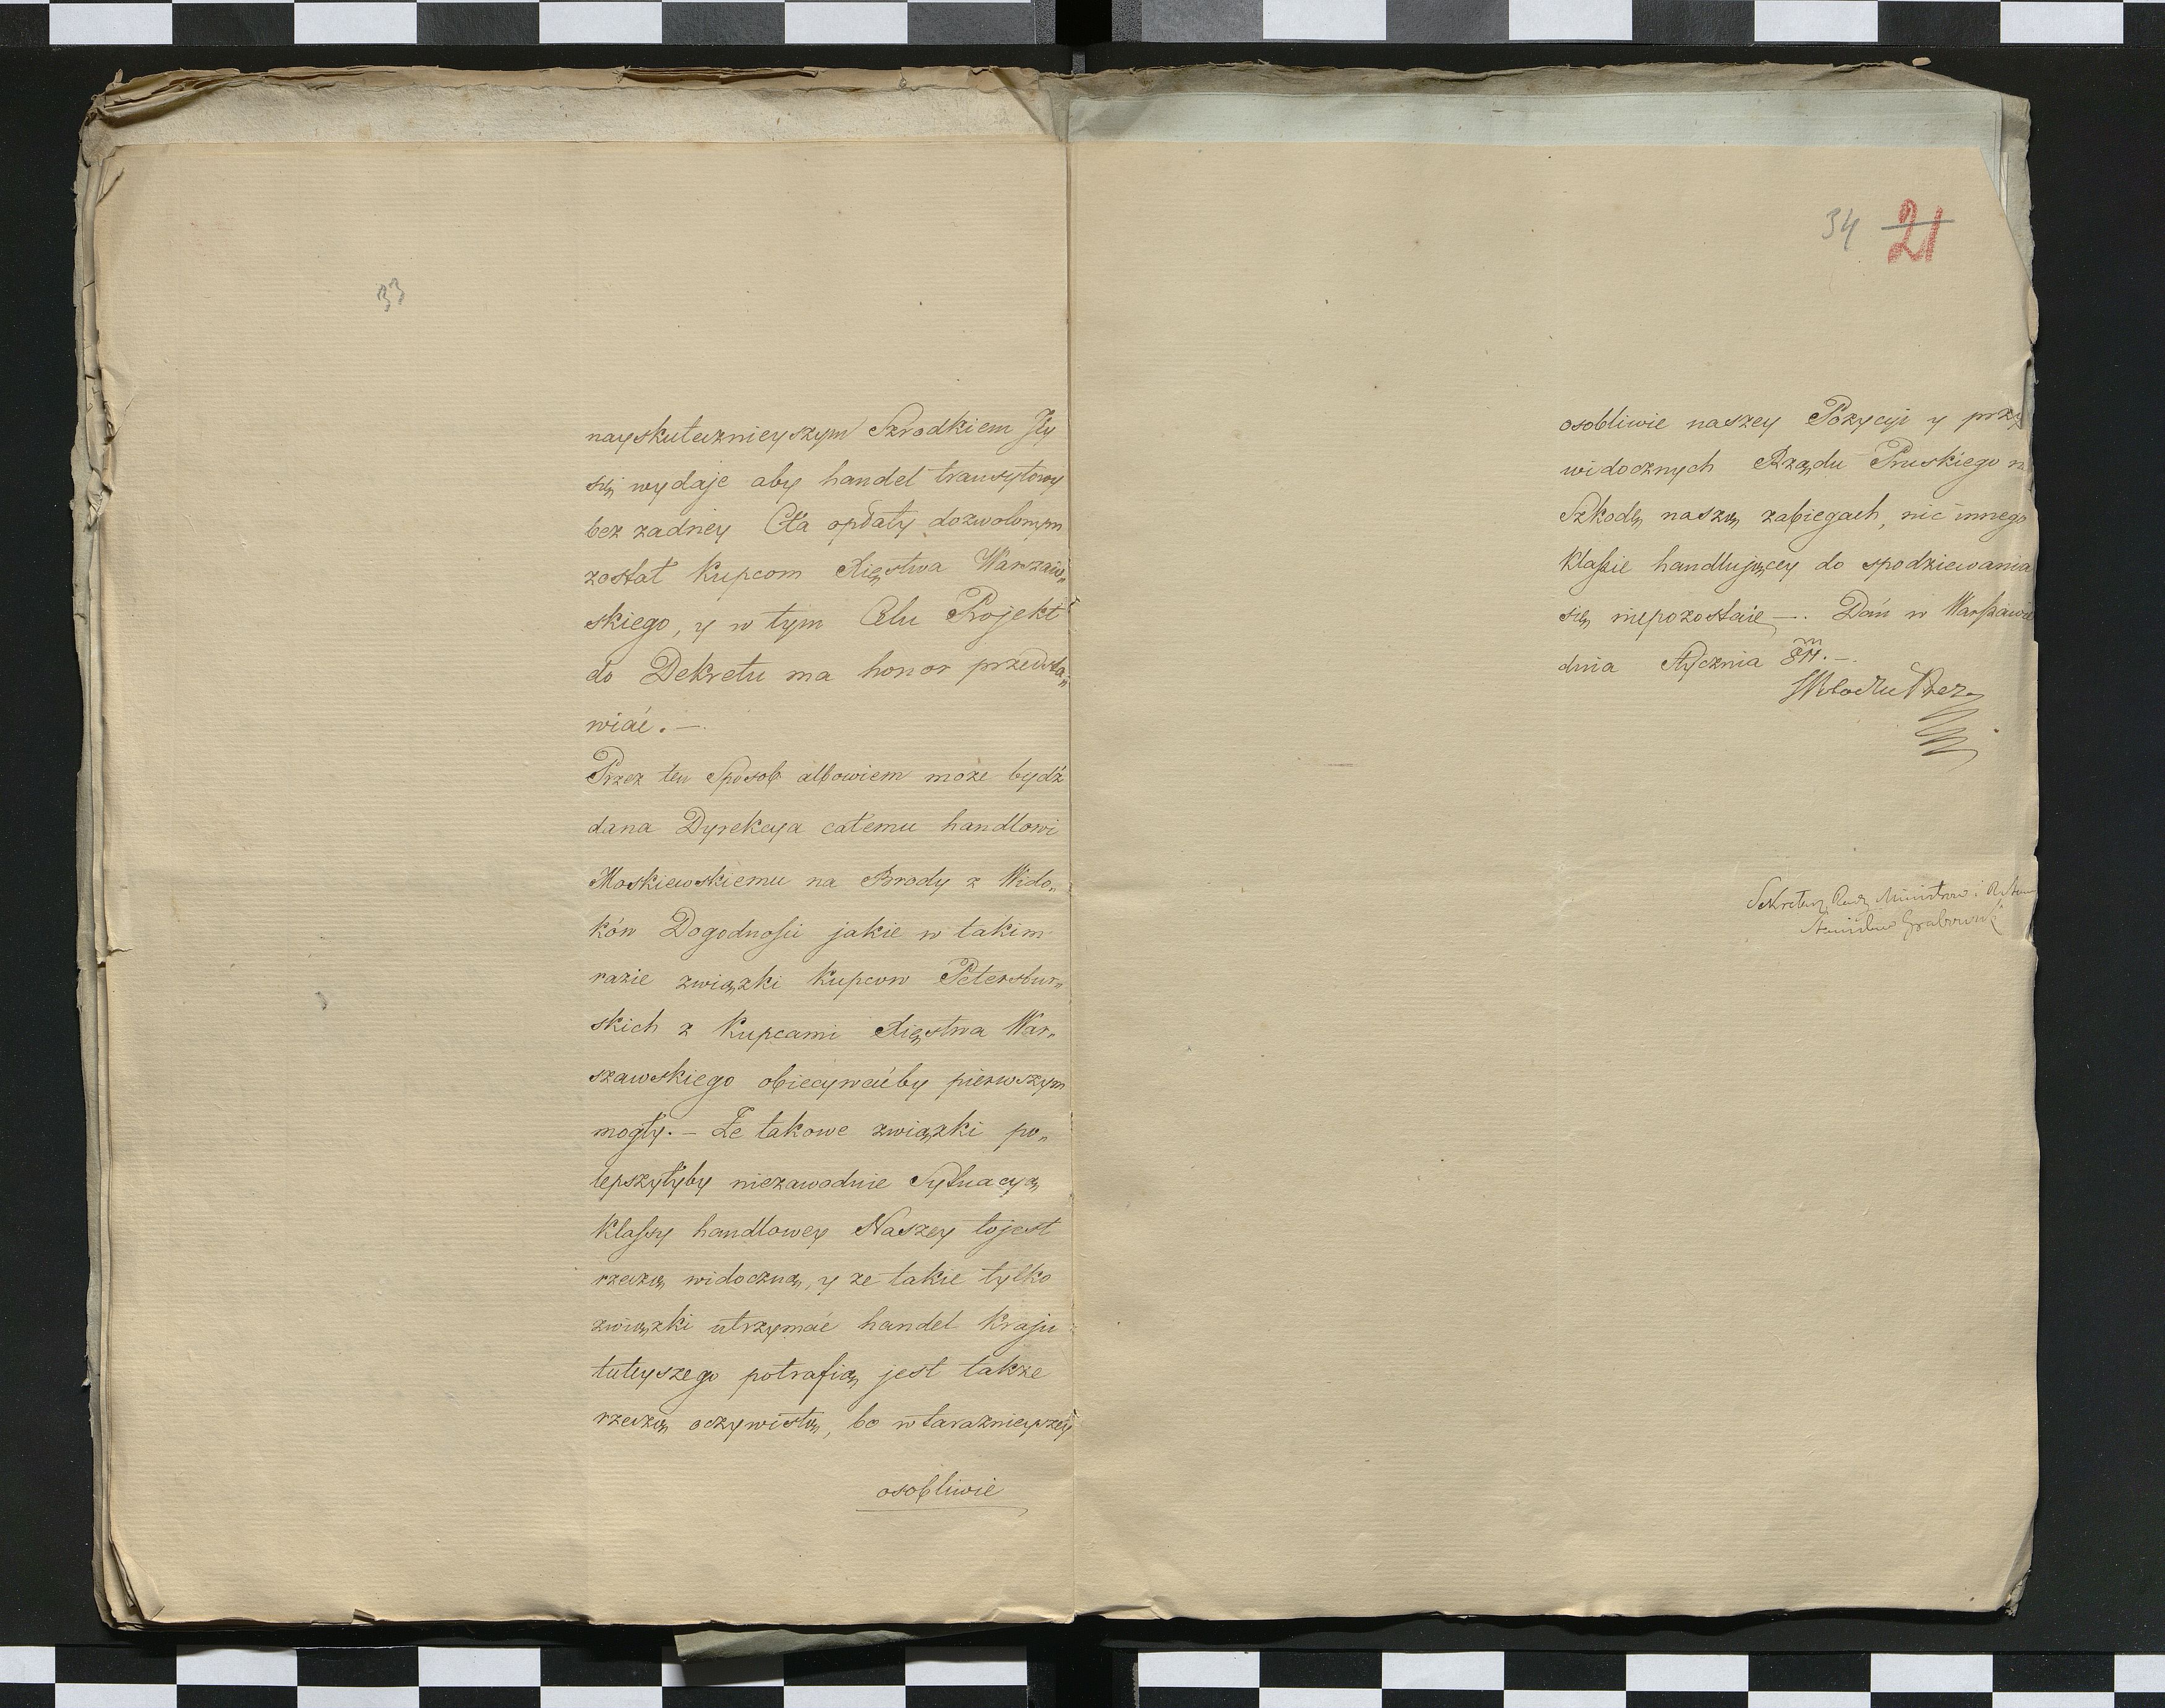 33
nayskutecznieyszym Szrodkiem Jey
się wydaje aby handel transytowy
bez zadney Cła opłaty dozwolonym
został Kupcom Xięstwa Warzaw„
skiego, y w tym Celu Projekt
do Dekretu ma honor przedsta„
wiać. —
Przez ten Sposob albowiem może bydź
dana Dyrekcya całemu handlowi
Moskiewskiemu na Brody z Wido„
ków Dogodnosci jakie w takim
razie związki Kupcow Petersbur„
skich z Kupcami Xięstwa War„
szawskiego obiecywaćby pierwszym
mogły. — Że takowe związki po„
lepszyłyby niezawodnie Sytuacyą
Klassy handlowey Naszey tojest
rzeczą widoczną, y ze takie tylko
związki utrzymać handel Kraju
tuteyszego potrafią jest takze
rzeczą oczywistą, bo w tarazniejszey
osobliwie
34 21
osobliwie naszey Pozycyi y przy
widocznych Rządu Pruskiego n
Szkodę naszą zabiegach, nic innego
Klassie handlującey do spodziewania
się niepozostaie —. Dań w Warszawie
dnia Stycznia 811. —
Sekretarz Rady Ministrow i
Stanisław Grabowski